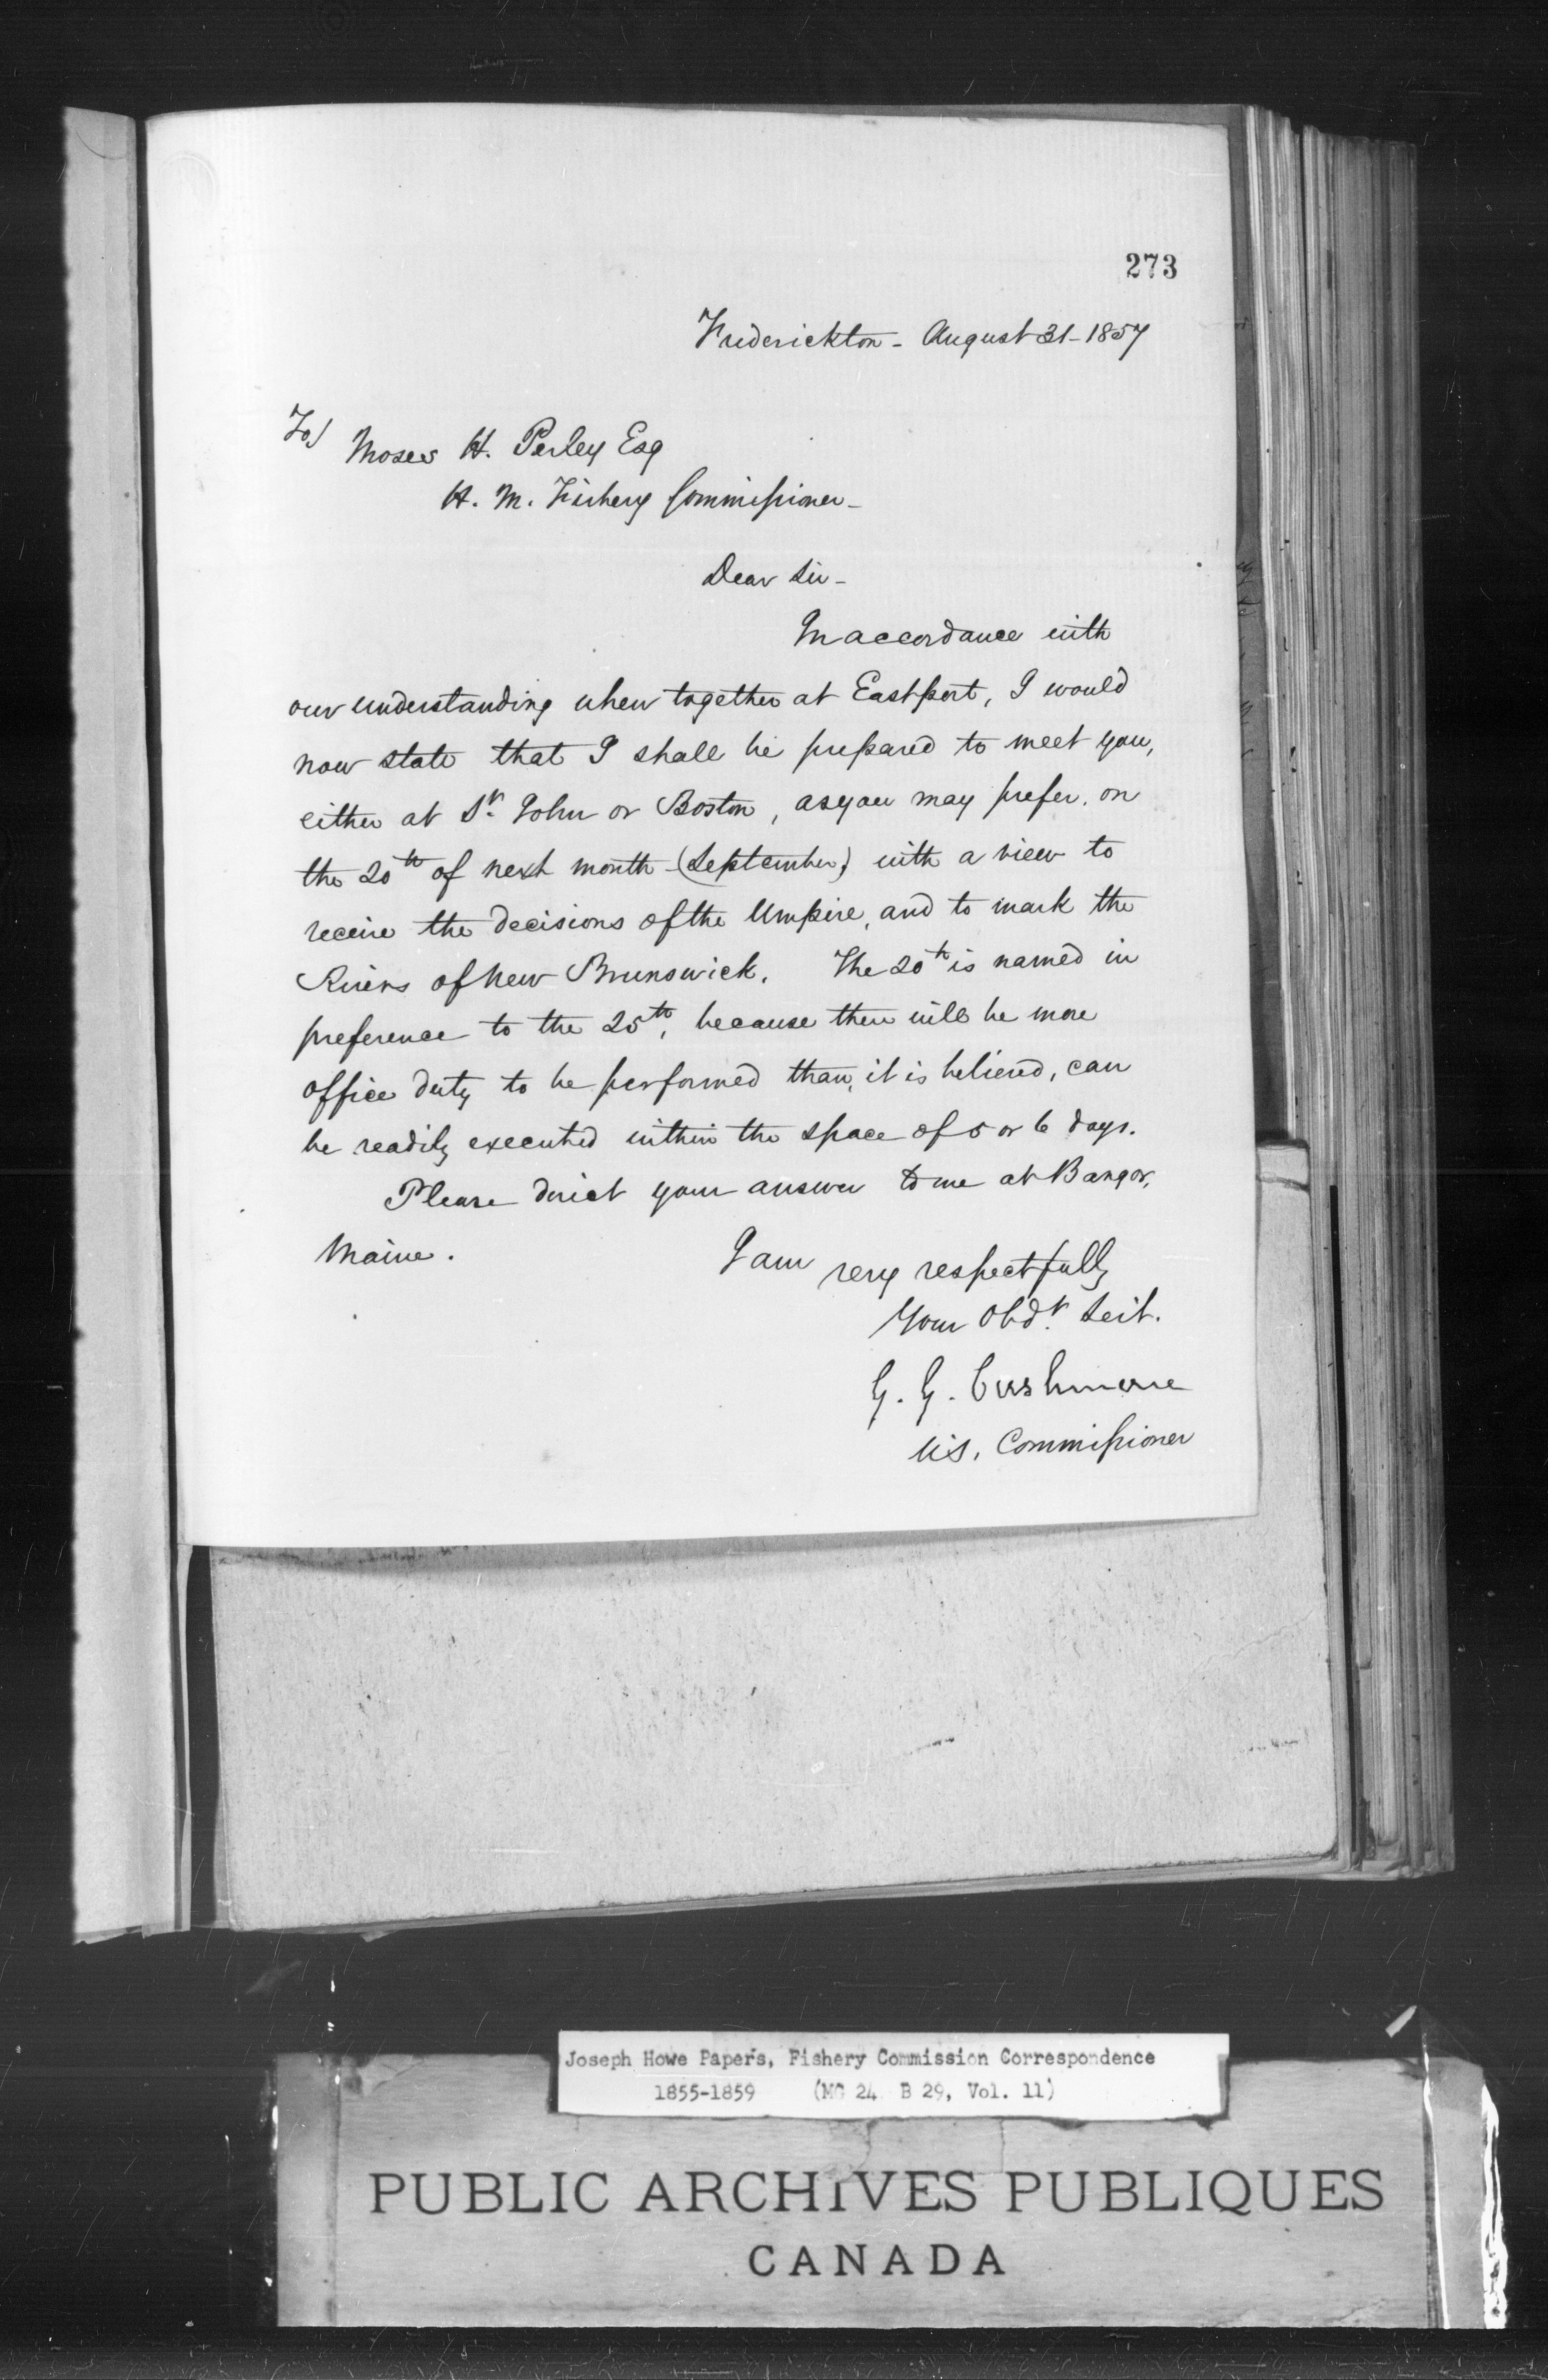 273
Frederickton - August 31 - 1857
To/
Moses H. Perley Esq
H. M. Fishery Commissioner -
Dear Sir -
In accordance with
our understanding when together at Eastport, I would
now state that I shall be prepared to meet you,
either at St. John or Boston, as you may prefer, on
the 20th of next month (September) with a view to
receive the decisions of the Umpire, and to mark the
Rivers of New Brunswick. The 20th is named in
preference to the 25th, because there will be more
office duty to be performed than, it is believed, can
be readily executed within the space of 5 or 6 days.
Please direct your answer to me at Bangor,
Maine.
I am very respectfully
Your Obdt. Servt.
G. G. Cushman
U.S. Commissioner
Joseph Howe Papers, Fishery Commission Correspondence
1855-1859 (MG 24 B 29, Vol. 11)
PUBLIC ARCHIVES PUBLIQUES
CANADA